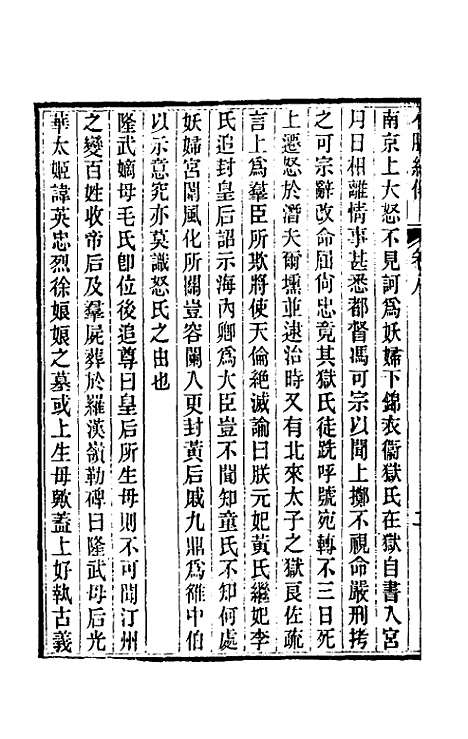 南京上大怒不見訶爲妖婦下錦衣衞獄氏在獄自書入宮
月日相離情事甚悉都督馮可宗以聞上擲不視命嚴刑拷
之可宗辭改命屈尚忠竟其獄氏徒跣呼號宛轉不三日死
上遷怒於潛夫爾壎並逮治時又有北來太子之獄良佐疏
言上爲羣臣所欺將使天倫絶滅諭曰朕元妃黃氏繼妃李
氏追封皇后詔示海內卿爲大臣豈不聞知童氏不知何處
妖婦宮闈風化所關豈容闌入更封黃后戚九鼎爲雒中伯
以示意究亦莫識怒氏之由也
隆武嫡母毛氏卽位後追尊曰皇后所生母則不可聞汀州
之變百姓收帝后及羣屍葬於羅漢嶺勒碑曰隆武母后光
華太姬諱英忠烈徐娘娘之墓或上生母歟蓋上好執古義